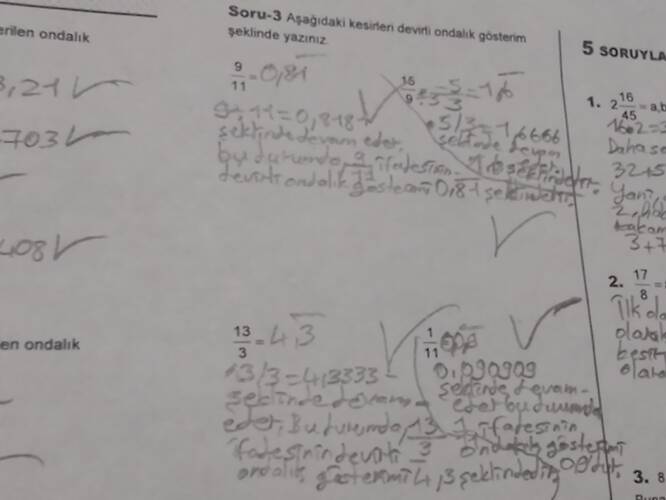 erilen ondalık
3,21
703
408
en ondalık
Soru-3 Aşağıdaki kesirleri devirli ondalık gösterim
şeklinde yazınız.
9/11 = 0,81
9÷11=0,818
şeklinde devam eder,
bu durumda, 9/11 ifadesinin
devirli ondalık gösterimi 0,81 şeklindedir.
15/9 ÷3 = 5/3 = 1,6
5/3 = 1,6666
şeklinde devam
13/3 = 4,3
13/3 = 4,3333
şeklinde devam
eder, Bu durumda, 13/3
ifadesinin devirli
ondalık gösterimi 4,3 şeklindedir
1/11
0,090909
şeklinde devam
eder bu durumda
1 ifadesinin
ondalık gösterimi
5 SORUYLA
1. 2 16/45 = a,b
16.2=3
Daha so
32+5
Yani,
3+7
2. 17/8 =
İlk ola
olarak
beşir
olara
3. 8